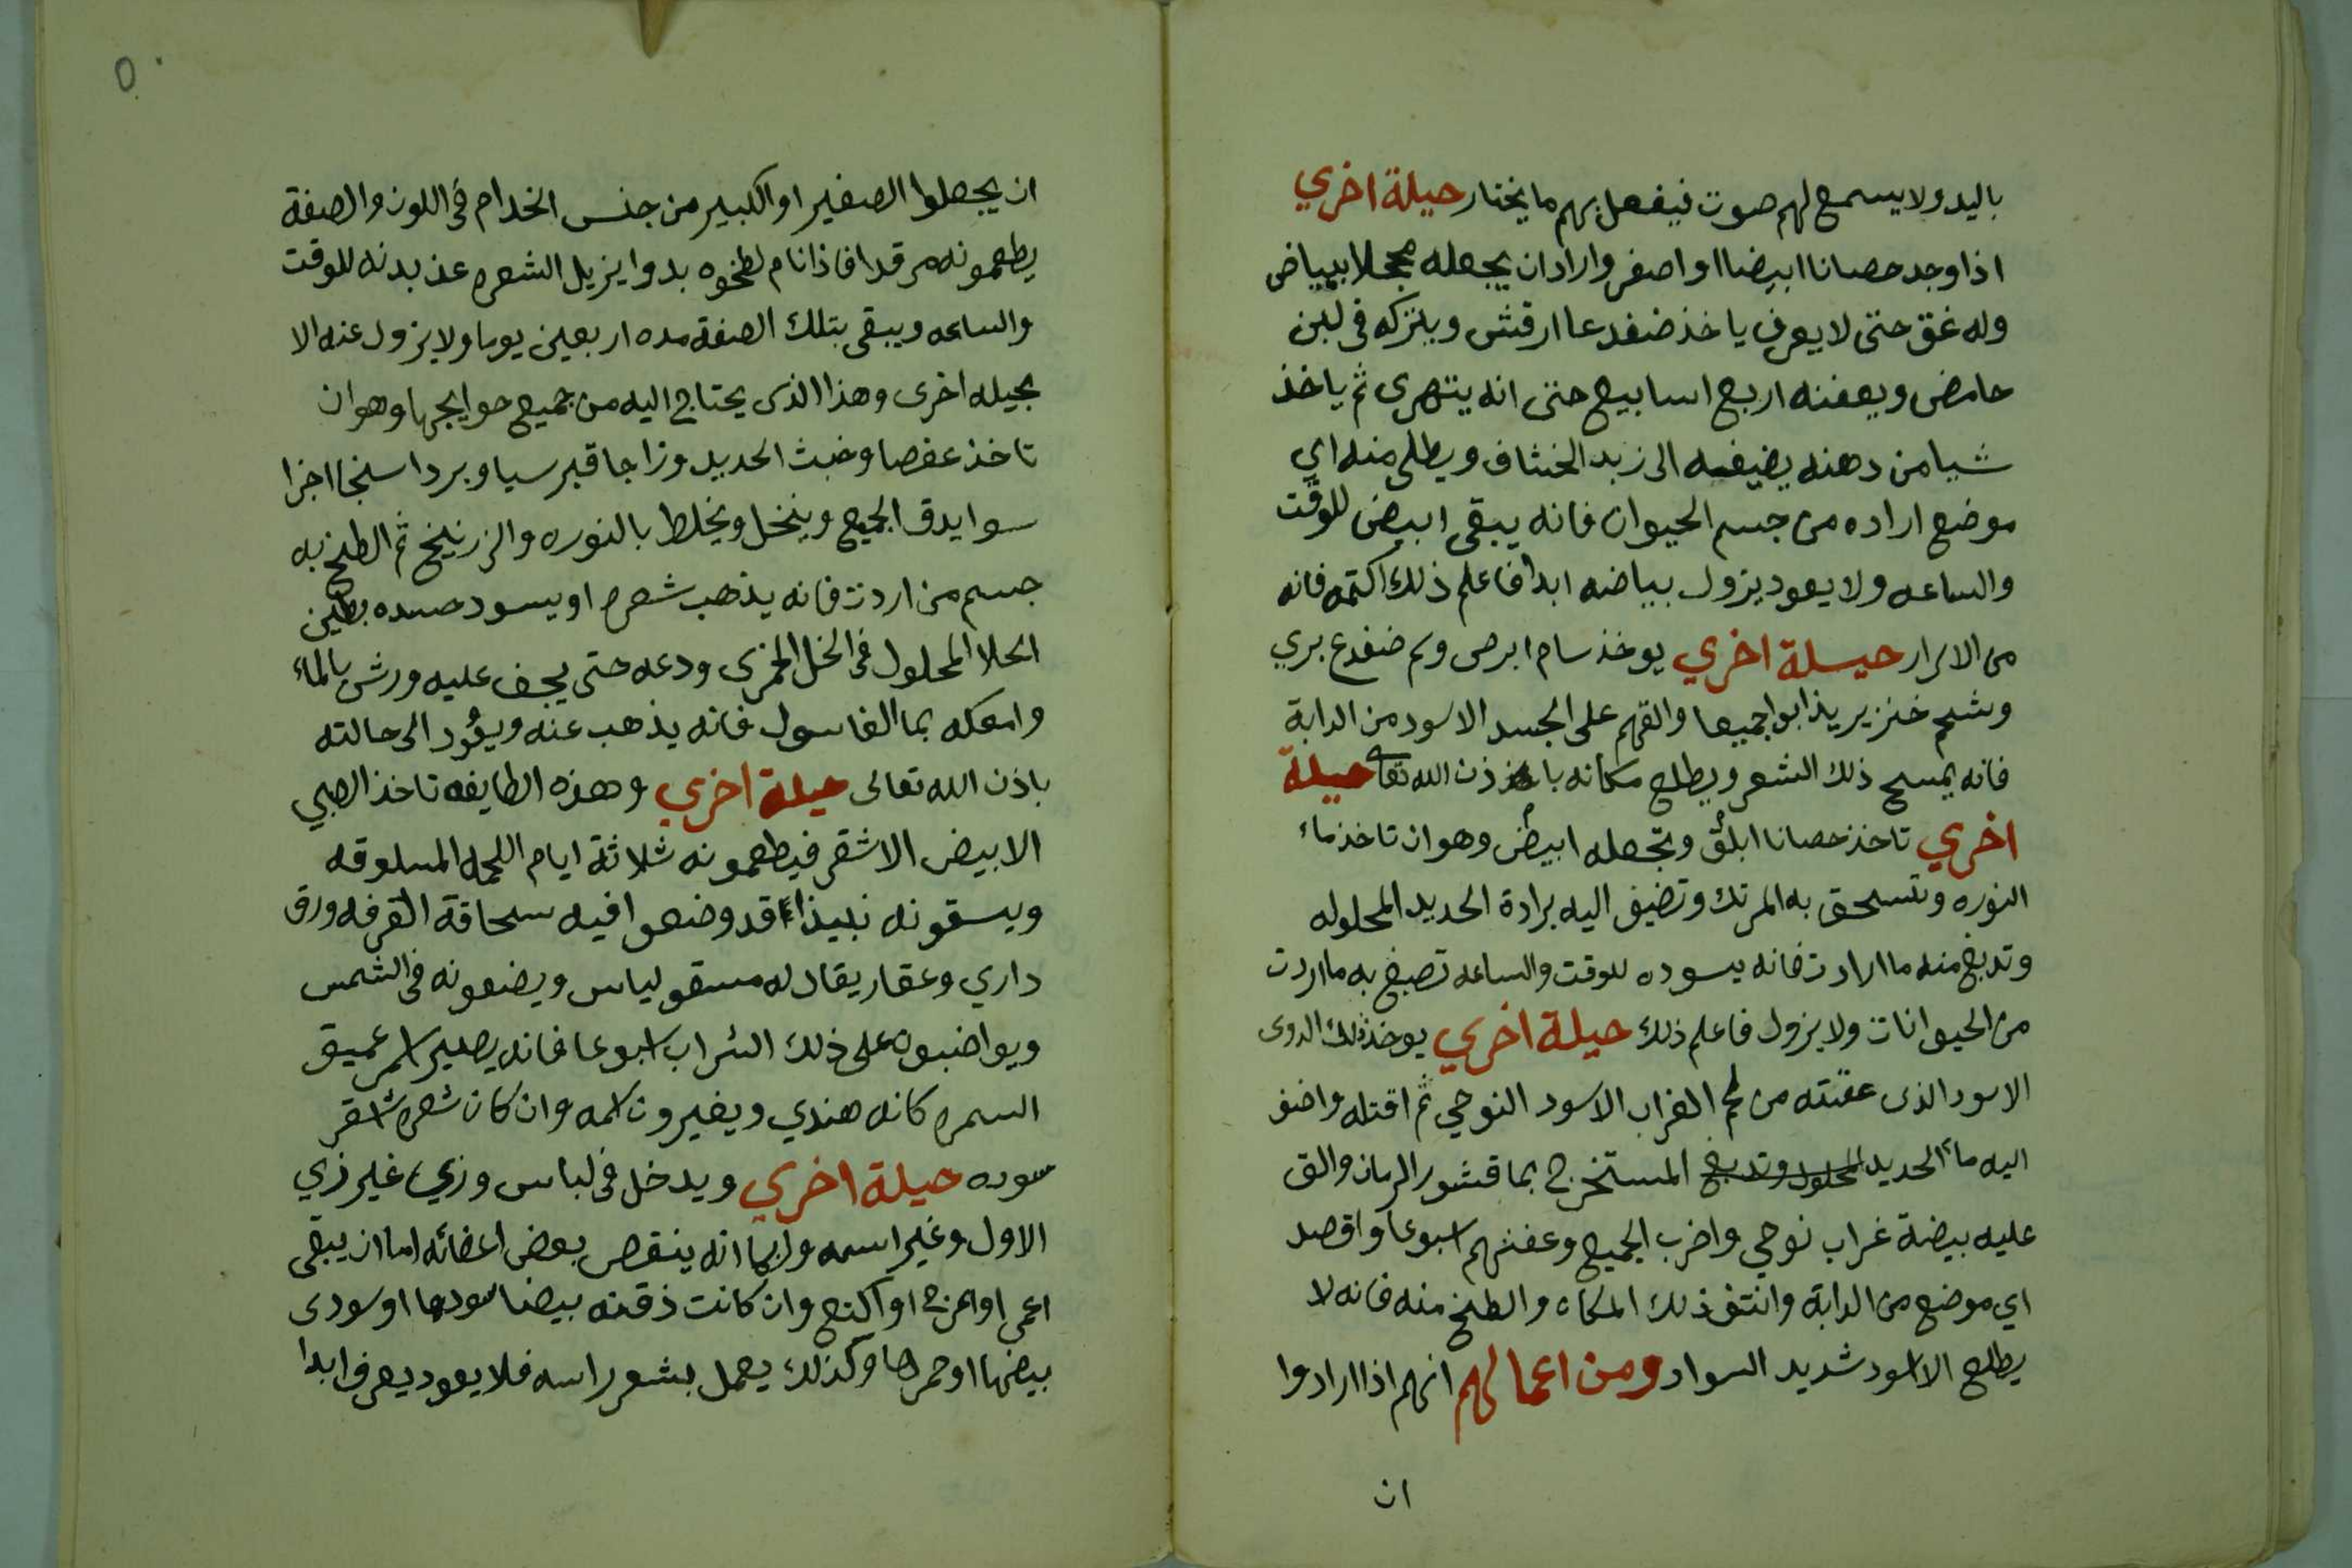 باليد ولا يسمع لهم صوت فيفعل بهم ما يختار حيلة اخري
اذا وجد حصانا ابيضا او اصفر واراد ان يجعله محجلا ببياض
وله غق حتى لا يعرف ياخذ ضفدعا ارقش ويتركه فى لبن
حامض ويعفنه اربع اسابيع حتى انه يتهرى ثم ياخذ
شيا من دهنه يضيفه الى زبد الخشاف ويطلى منه اي
موضع اراده من جسم الحيوان فانه يبقى ابيض للوقت
والساعه ولا يعود يزول بياضه ابدا فاعلم ذلك اكتمه فانه
من الاسرار حيلة اخري يوخذ سام ابرص وسم ضفدع بري
وشحم خنزير يذابوا جميعا والقهم على الجسد الاسود من الدابة
فانه يمسح ذلك الشعر ويطلع مكانه باذن الله تعالى حيلة
اخري تاخذ حصانا ابلق وتجعله ابيض وهو ان تاخذ ماء
النوره وتسحق به المرتك وتضيف اليه برادة الحديد المحلوله
وتدبغ منه ما ارادت فانه يسوده للوقت والساعه تصبغ به ما اردت
من الحيوانات ولا يزول فاعلم ذلك حيلة اخري يوخذ ذلك الدوى
الاسود الذى عفنته من لحم الغراب الاسود النوحي ثم اقتله واضف
اليه ماء الحديد المحلول وتدبغ المستخرج بما قشور الرمان والق
عليه بيضة غراب نوحي واضرب الجميع وعفنهم اسبوعا واقصد
اي موضع من الدابة وانتف ذلك المكان والطخ منه فانه لا
يطلع الا اسود شديد السواد ومن اعمالهم انهم اذا ارادوا
ان
٥٠
ان يجعلوا الصغير او الكبير من جنس الخدام فى اللون والصفة
يطعمونه مرقدا فاذا نام لطخوه بدوا يزيل الشعره عن بدنه للوقت
والساعه ويبقى بتلك الصفة مده اربعين يوما ولا يزول عنه الا
بحيله اخرى وهذا الذى يحتاج اليه من جميع حوايجها وهو ان
تاخذ عفصا وخبث الحديد وزاجا قبرسيا وبرداسنجا اجزا
سوا يدق الجميع وينخل ويخلط بالنوره والزرنيخ ثم الطخ به
جسم من اردت فانه يذهب شعره او يسود صده بطين
الحلا المحلول فى الخل الخمرى ودعه حتى يجف عليه ورش بالماء
وامعكه بما الغاسول فانه يذهب عنه ويعود الى حالته
باذن الله تعالى حيلة اخري وهذه الطايفه تاخذ الصبي
الابيض الاشقر فيطعمونه ثلاثة ايام اللحمه المسلوقه
ويسقونه نبيذا قد وضعوا فيه سحاقة القرفه ورق
داري وعقار يقال له مسقولياس ويضعونه فى الشمس
ويواضبون على ذلك الشراب اسبوعا فانه يصير اسمر عميق
السمره كانه هندي ويغيرون اسمه وان كان شعره اشقر
سوده حيلة اخري ويدخل فى لباس وزي غير زي
الاول وغير اسمه وربما انه ينقص بعض اعضائه اما ان يبقى
اعمى او اعرج او اكتع وان كانت ذقنه بيضا سودها او سودى
بيضها او حمرها وكذلك يعمل بشعر راسه فلا يعود يعرف ابدا